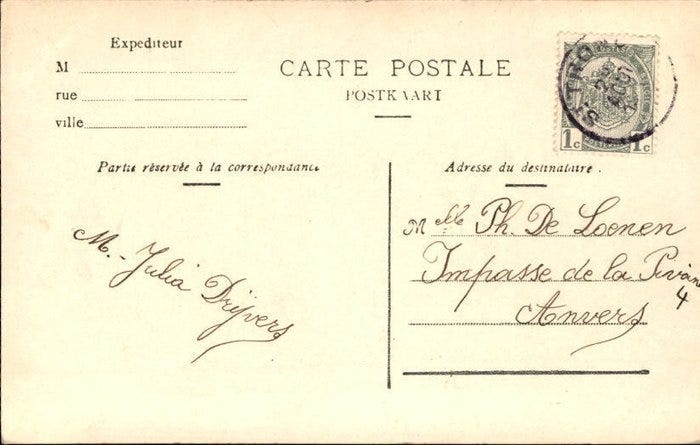 Expediteur
M
rue
ville
CARTE POSTALE
POSTKAART
1c 1c
Partie réservée à la correspondance
Adresse du destinataire.
M.-Julia Drijvers
Melle Ph. De Loenen
Impasse de la
4
Anvers